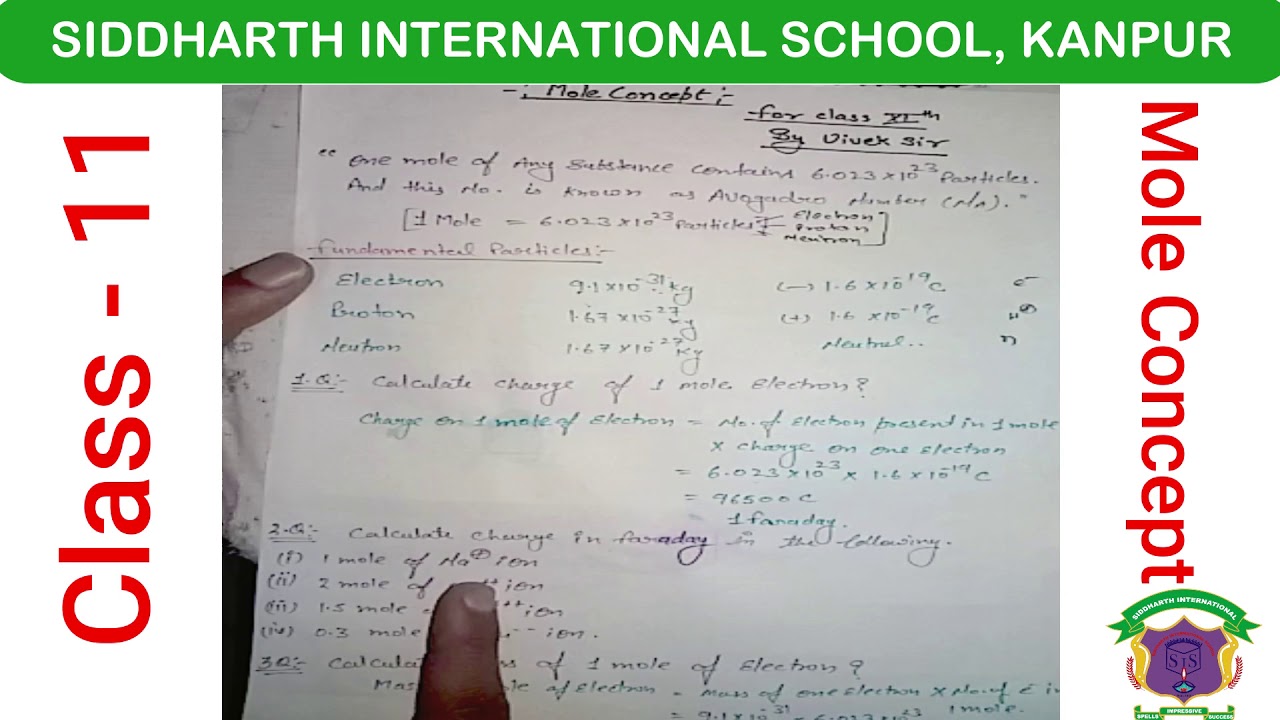 SIDDHARTH INTERNATIONAL SCHOOL, KANPUR
Class - 11
Mole Concept
-: Mole Concept :-
-for class XIth
By Vivek Sir
"One mole of Any Substance contains 6.023×10²³ Particles.
And this No. is known as Avogadro Number (NA)."
[1 Mole = 6.023×10²³ Particles
Electron
Proton
Neutron]
-Fundamental Particles:-
Electron 9.1×10⁻³¹ kg (−) 1.6×10⁻¹⁹C e⁻
Proton 1.67×10⁻²⁷ kg (+) 1.6×10⁻¹⁹C H⊕
Neutron 1.67×10⁻²⁷ Kg Neutral.. n
1.Q:- Calculate charge of 1 mole Electron?
Charge on 1 mole of Electron = No. of Electron present in 1 mole
× charge on one electron
= 6.023×10²³ × 1.6×10⁻¹⁹ C
= 96500 C
1 faraday.
2.Q:- Calculate charge in faraday in the following.
(i) 1 mole of Na⊕ ion
(ii) 2 mole of ++ ion
(iii) 1.5 mole ++ ion
(iv) 0.3 mole -- ion.
3.Q:- Calculat of 1 mole of Electron?
Mas of Electron = Mass of one Electron × No. of e⁻ in
1 mole.
= 9.1×10⁻³¹ 6.023×10²³
SIDDHARTH INTERNATIONAL
SIS
SPELLS IMPRESSIVE SUCCESS